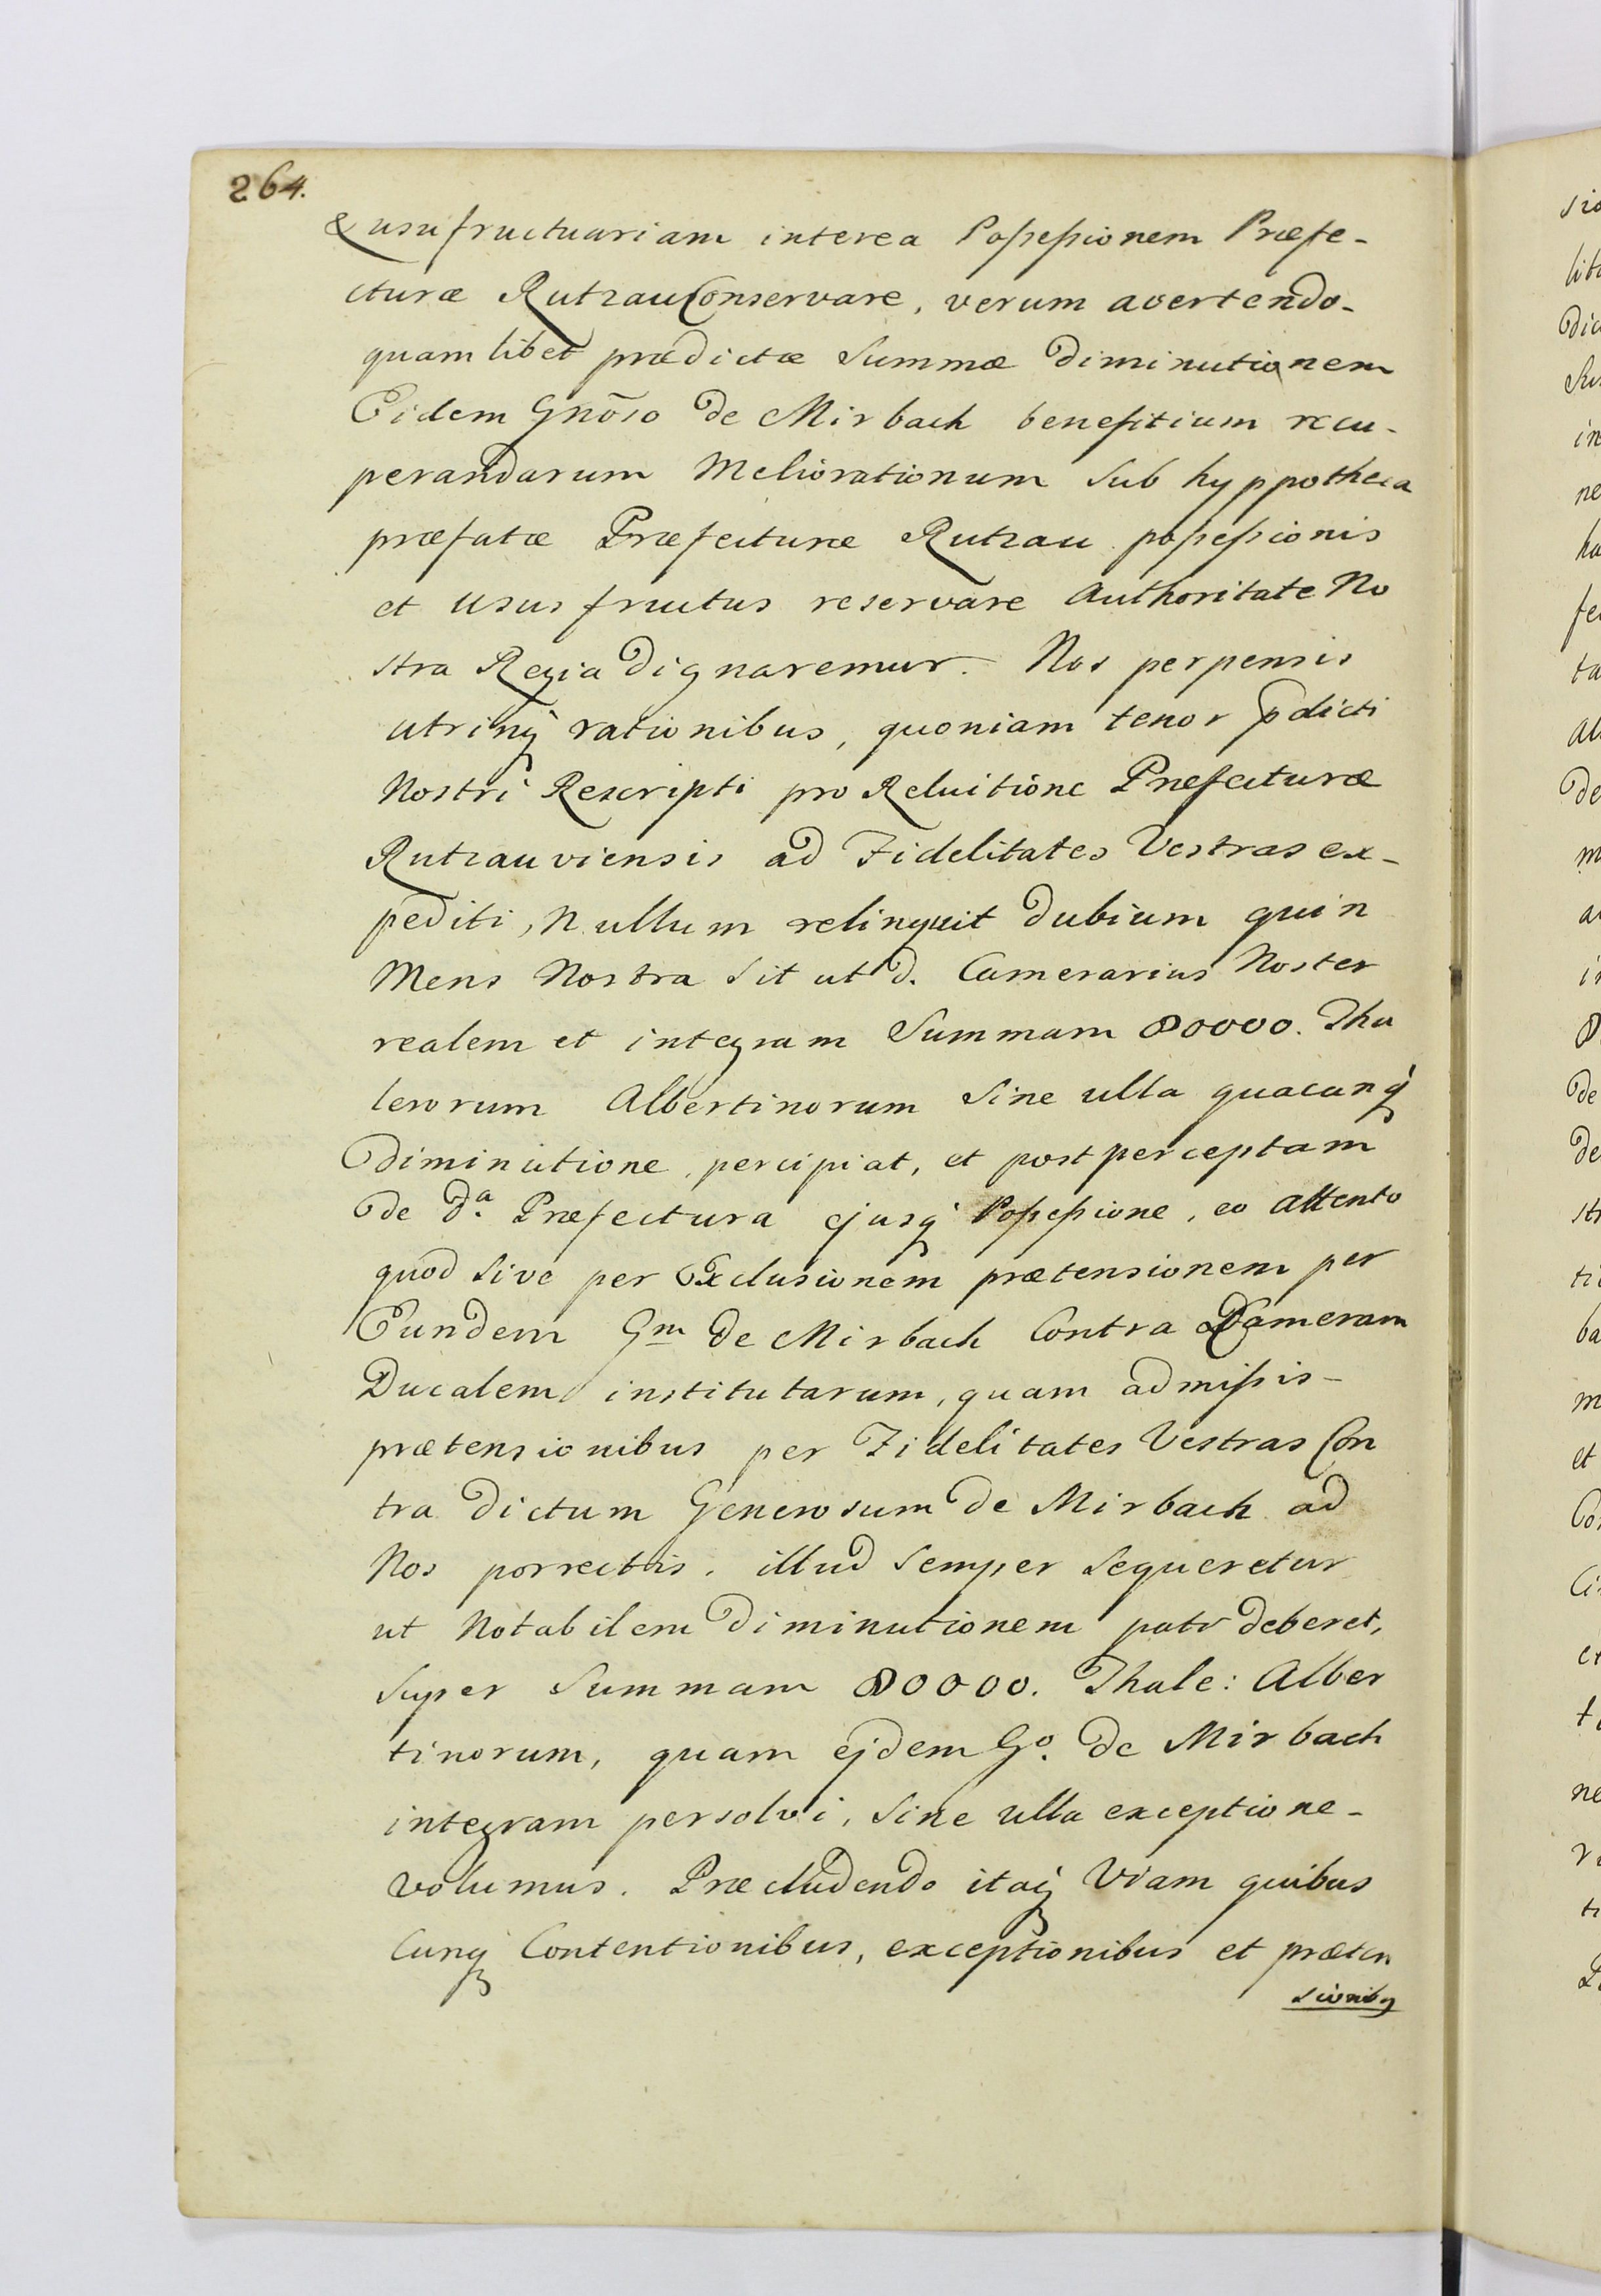 264.
& usufructuariam interea Possessionem Præfe-
cturæ Rutzau Conservare, verum avertendo-
quamlibet prædictæ Summæ diminutionem
Eidem Gnõso de Mirbach benefitium recu-
perandarum Meliorationum Sub hyppotheca
præfatæ Præfecturæ Rutzau possessionis
et Usus fructus reservare Authoritate No
stra Regia dignaremur. Nos perpensis
utrinq rationibus, quoniam tenor pdicti
Nostri Rescripti pro Reluitione Præfecturæ
Rutzauviensis ad Fidelitates Vestras ex-
pediti, Nullum relinquit dubium quin
Mens Nostra Sit ut d. Camerarius Noster
realem et integram Summam 80000. Tha
lerorum Albertinorum Sine ulla quacunq
diminutione percipiat, et post perceptam
de dª. Præfectura ejusq Possessione, eo attento
quod Sive per Exclusionem prætensionem per
Eundem Gm de Mirbach Contra Cameram
Ducalem institutarum, quam admissis-
prætensionibus per Fidelitates Vestras Con
tra dictum Generosum de Mirbach ad
Nos porrectis. illud Semper Sequeretur
ut Notabilem diminutionem pati deberet,
Super Summam 80000. Thale: Alber
tinorum, quam ejdem Gº. de Mirbach
integram persolvi, Sine ulla exceptione-
volumus. Præcludendo itaq Viam quibus
Cunq Contentionibus, exceptionibus et præten
sionibq